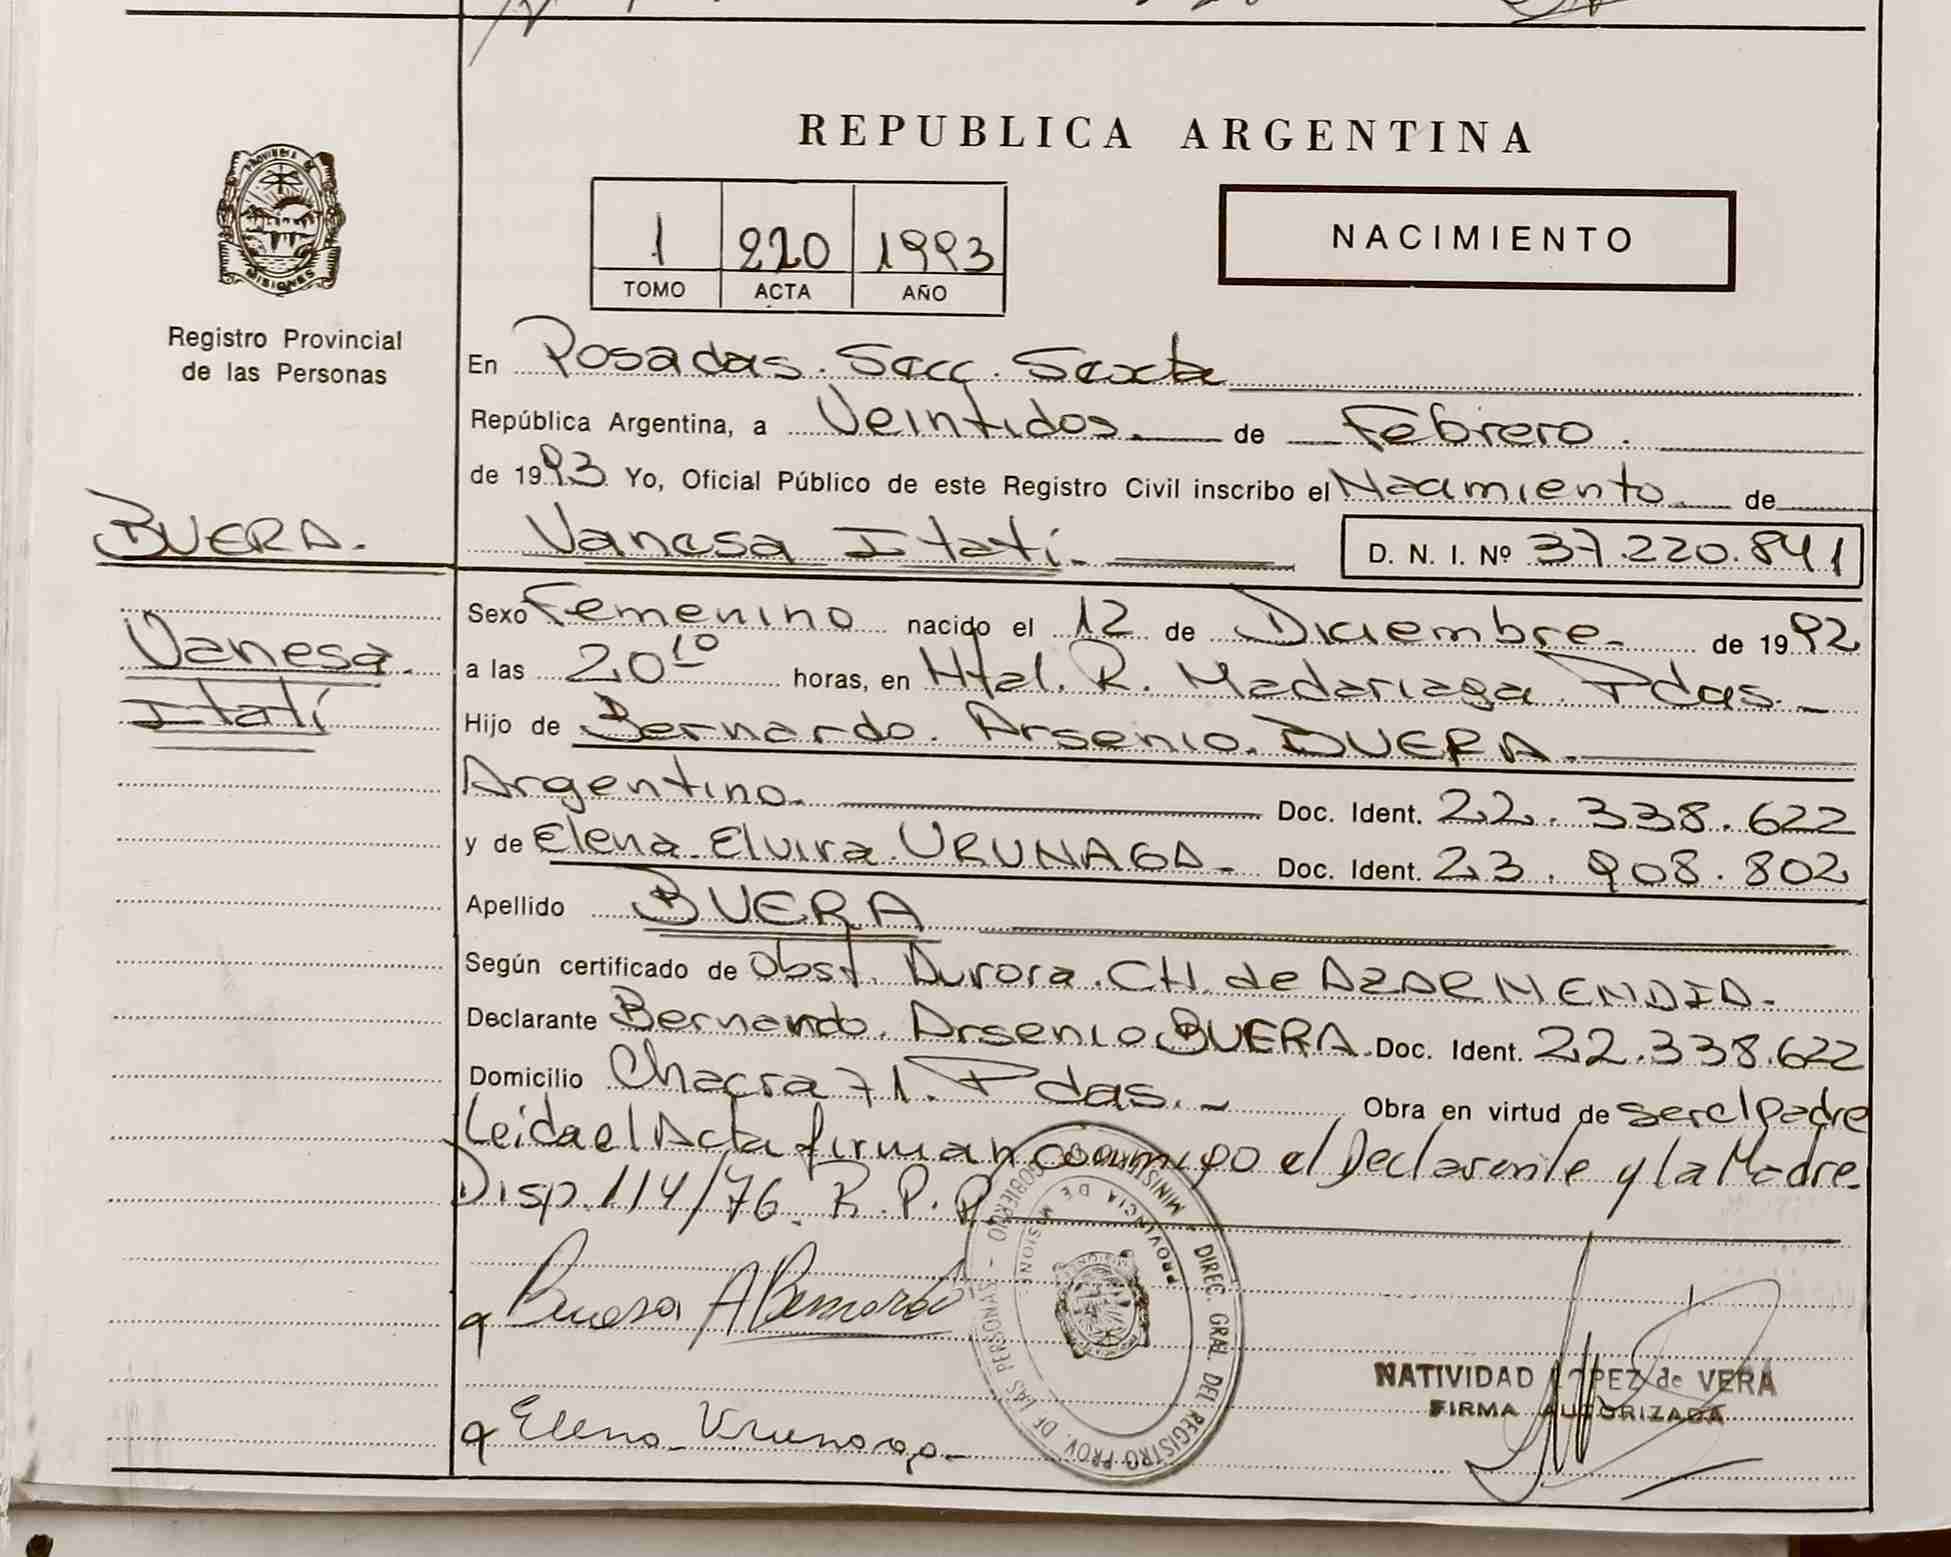 REPUBLICA ARGENTINA
PROVINCIA DE
MISIONES
Registro Provincial
de las Personas
1 220 1993
TOMO ACTA AÑO
NACIMIENTO
En Posadas. Secc. Sexta
República Argentina, a Veintidos. de Febrero.
de 1993 Yo, Oficial Público de este Registro Civil inscribo el Nacimiento de
BUERA. Vanesa Itatí. D. N. I. Nº 37.220.841
Sexo Femenino nacido el 12 de Diciembre de 1992
Vanesa
Itatí
a las 20 10 horas, en Htal. R. Madariaga. Pdas.
Hijo de Bernardo. Arsenio. BUERA.
Argentino. Doc. Ident. 22.338.622
y de Elena Elvira URUNAGA Doc. Ident. 23.908.802
Apellido BUERA
Según certificado de Obst. Aurora. CH. de AZARMENDIA.
Declarante Bernardo. Arsenio BUERA. Doc. Ident. 22.338.622
Domicilio Chacra 71. Pdas. Obra en virtud de ser el padre
Leida el Acta firman conmigo el Declarante y la Madre.
Disp. 114/76. R. P. P.
MINISTERIO DE GOBIERNO - DIREC. GRAL. DEL REGISTRO PROV. DE LAS PERSONAS
PROVINCIA DE MISIONES
Buera A Bernardo
NATIVIDAD LOPEZ de VERA
FIRMA AUTORIZADA
Elena Urunaga